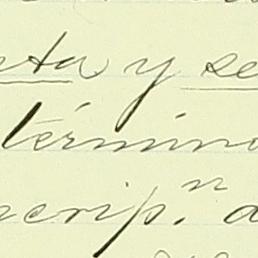 eta y se
término
scrip.ⁿ d